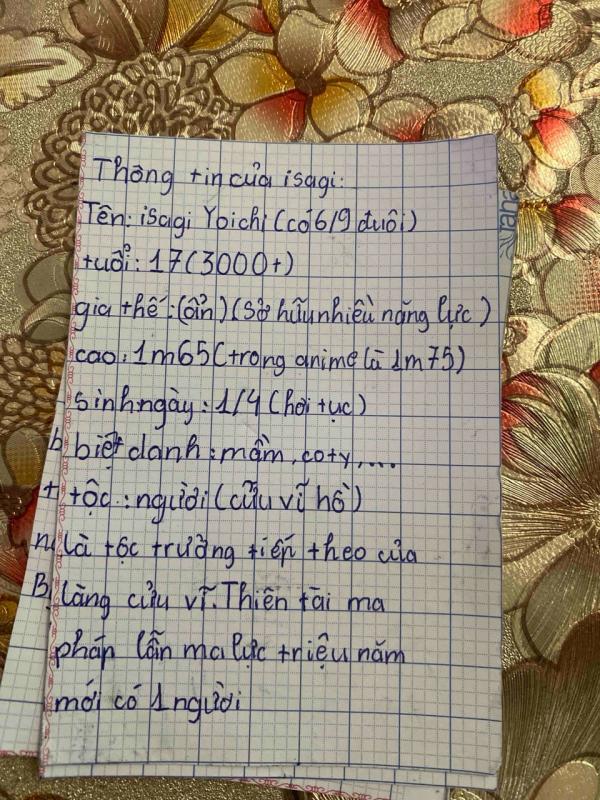 Thông tin của isagi:
Tên: isagi Yoichi (có 6/9 đuôi)
tuổi: 17 (3000+)
gia thế: (ẩn) (sở hữu nhiều năng lực)
cao: 1m65 (trong anime là 1m75)
sinh ngày: 1/4 (hơi tục)
biệt danh: mầm, coty,...
tộc: người (cửu vĩ hồ)
là tộc trưởng tiếp theo của
làng cửu vĩ. Thiên tài ma
pháp lẫn ma lực triệu năm
mới có 1 người